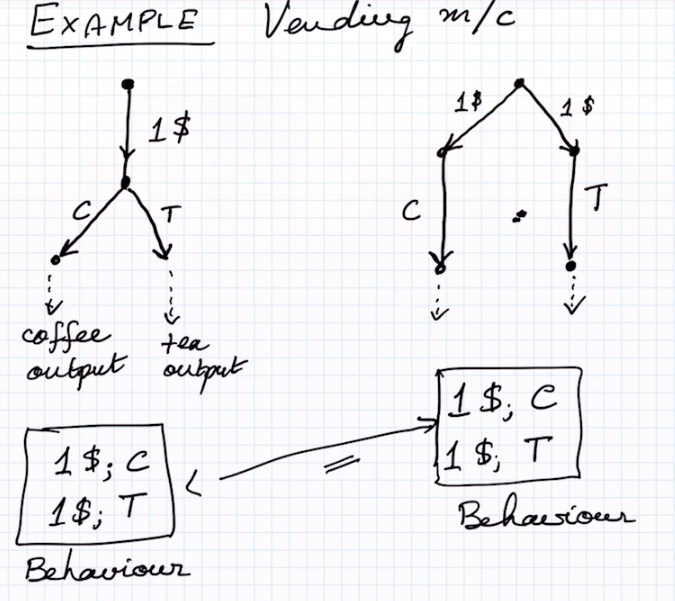 EXAMPLE Vending m/c
1$
C T
coffee output
tea output
1$ 1$
C T
1$; C
1$; T
Behaviour
1$; C
1$; T
Behaviour